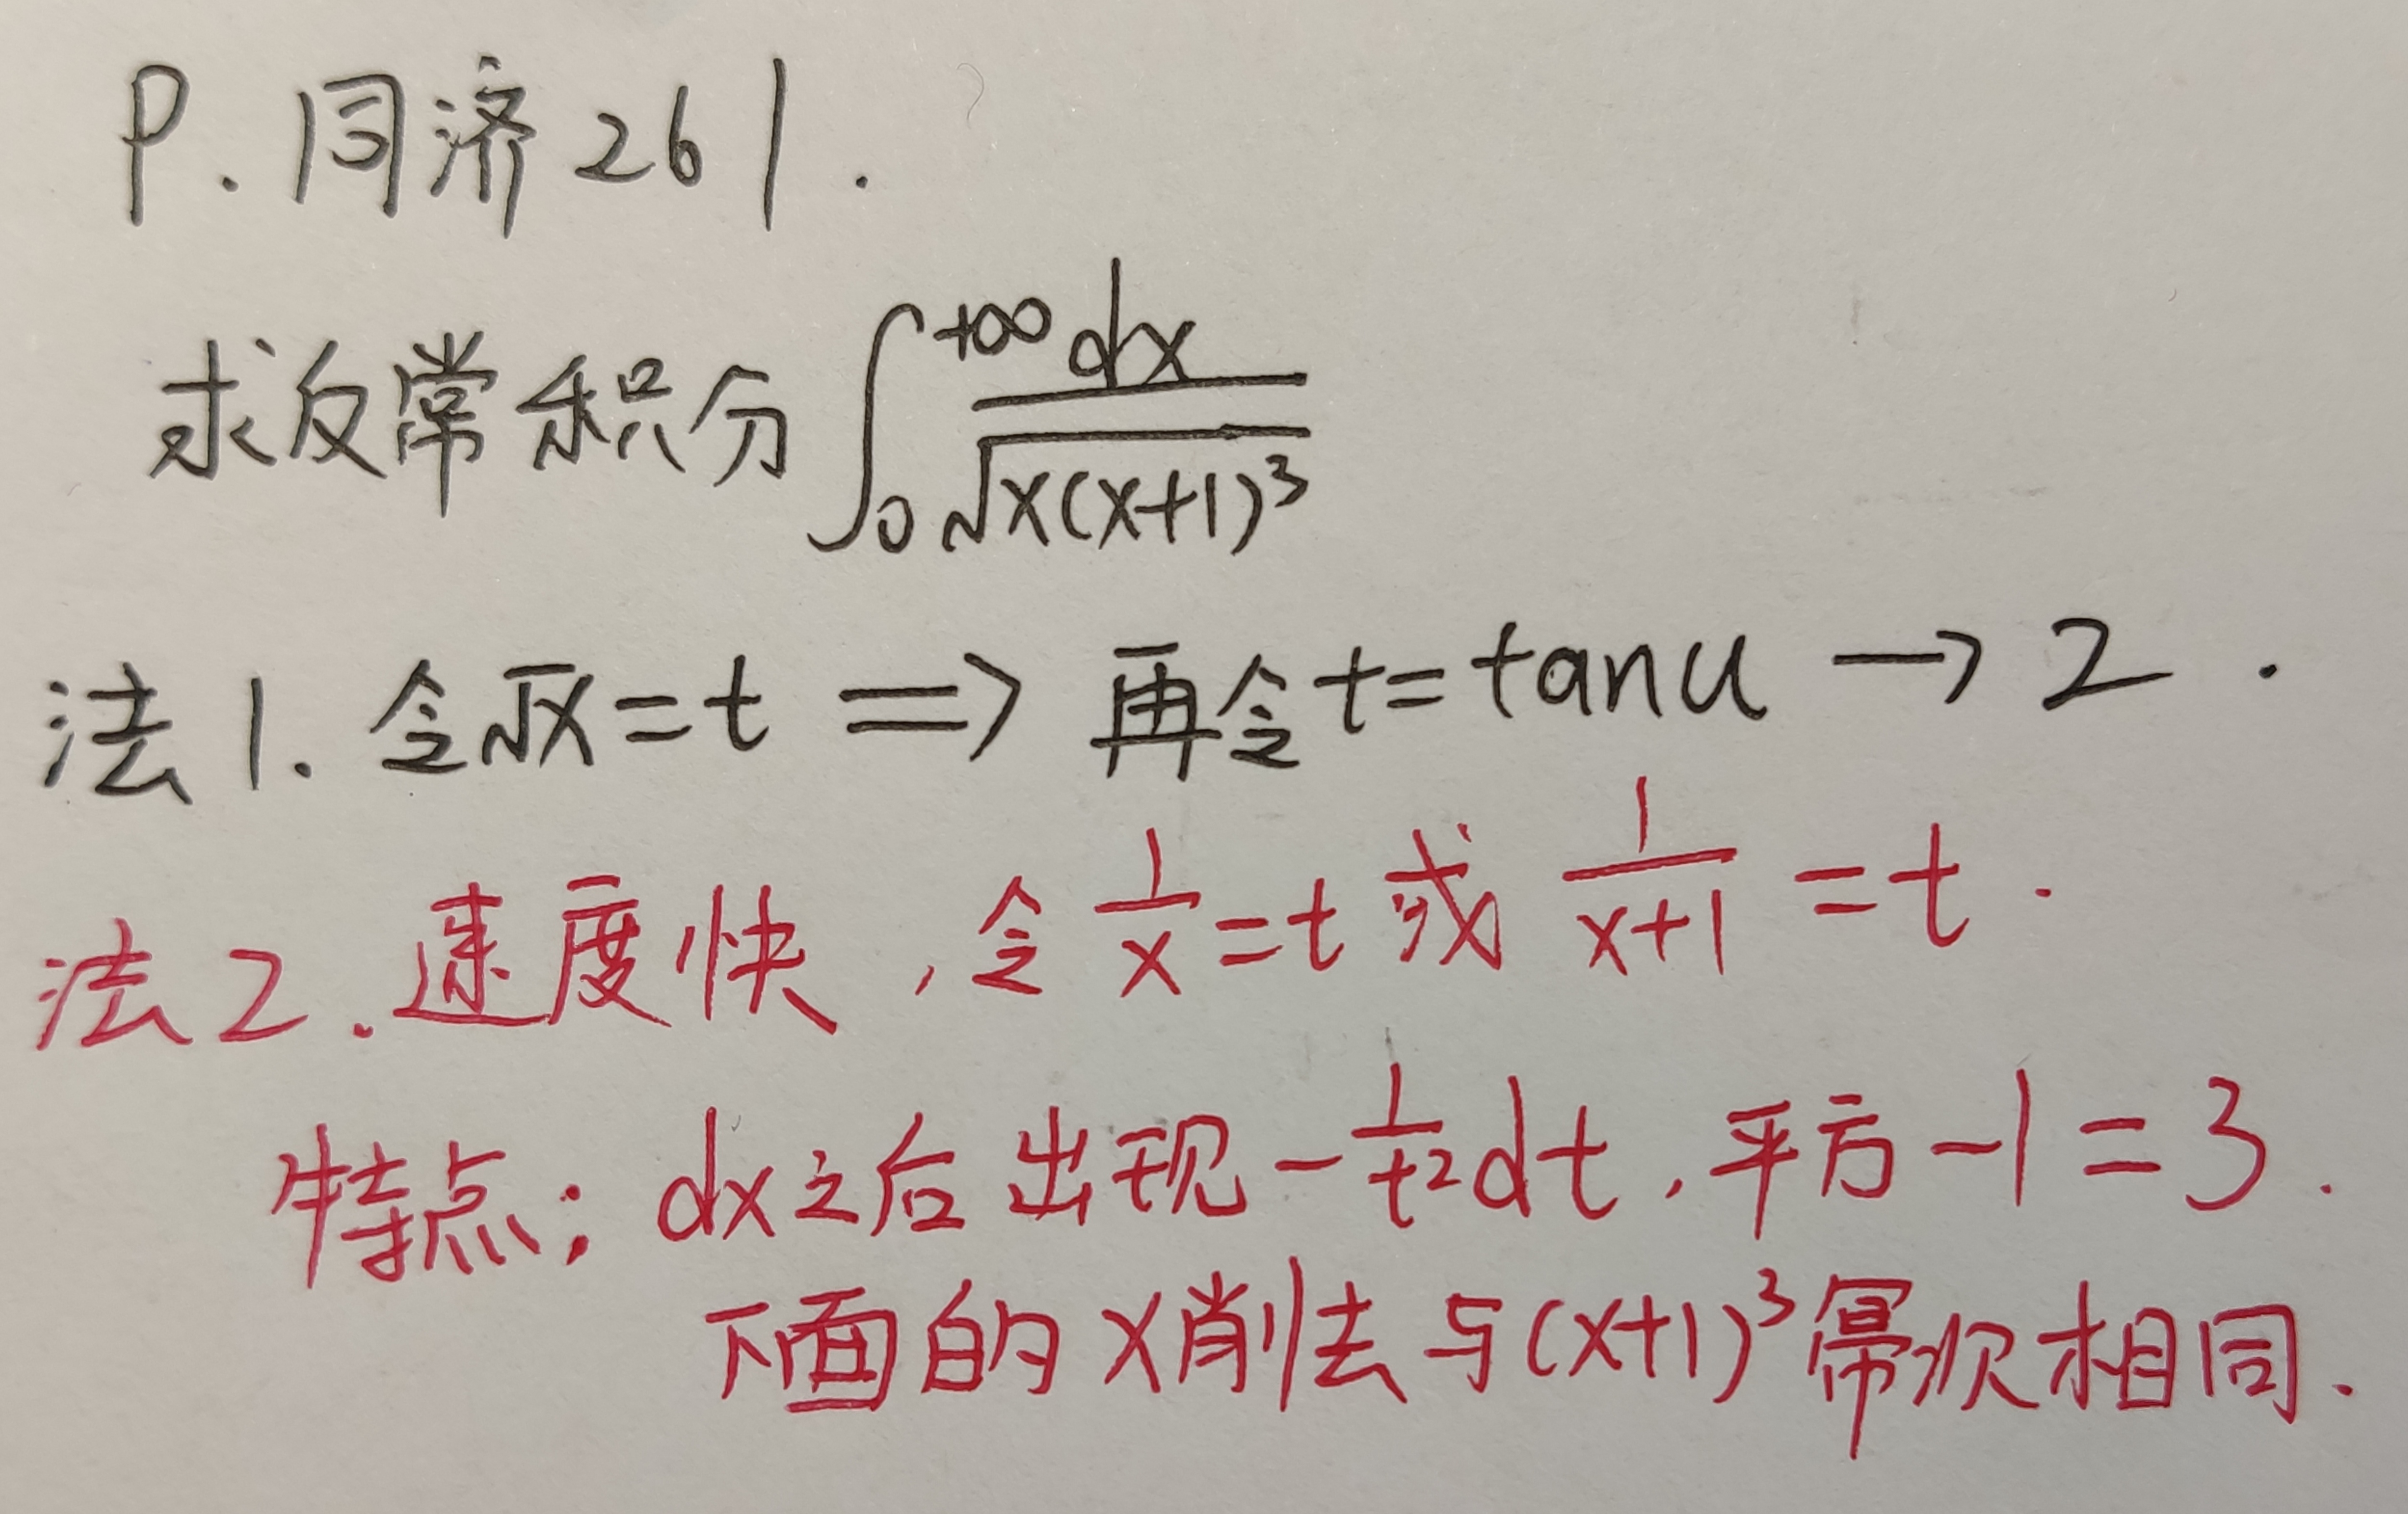 P.同济261.
求反常积分 ∫₀^{+∞} dx/√(x(x+1)³)
法1. 令√x=t ⇒ 再令t=tanu → 2.
法2.速度快,令1/x=t或1/(x+1)=t.
特点: dx之后出现-1/t²dt,平方-1=3.
下面的x削去与(x+1)³幂次相同.